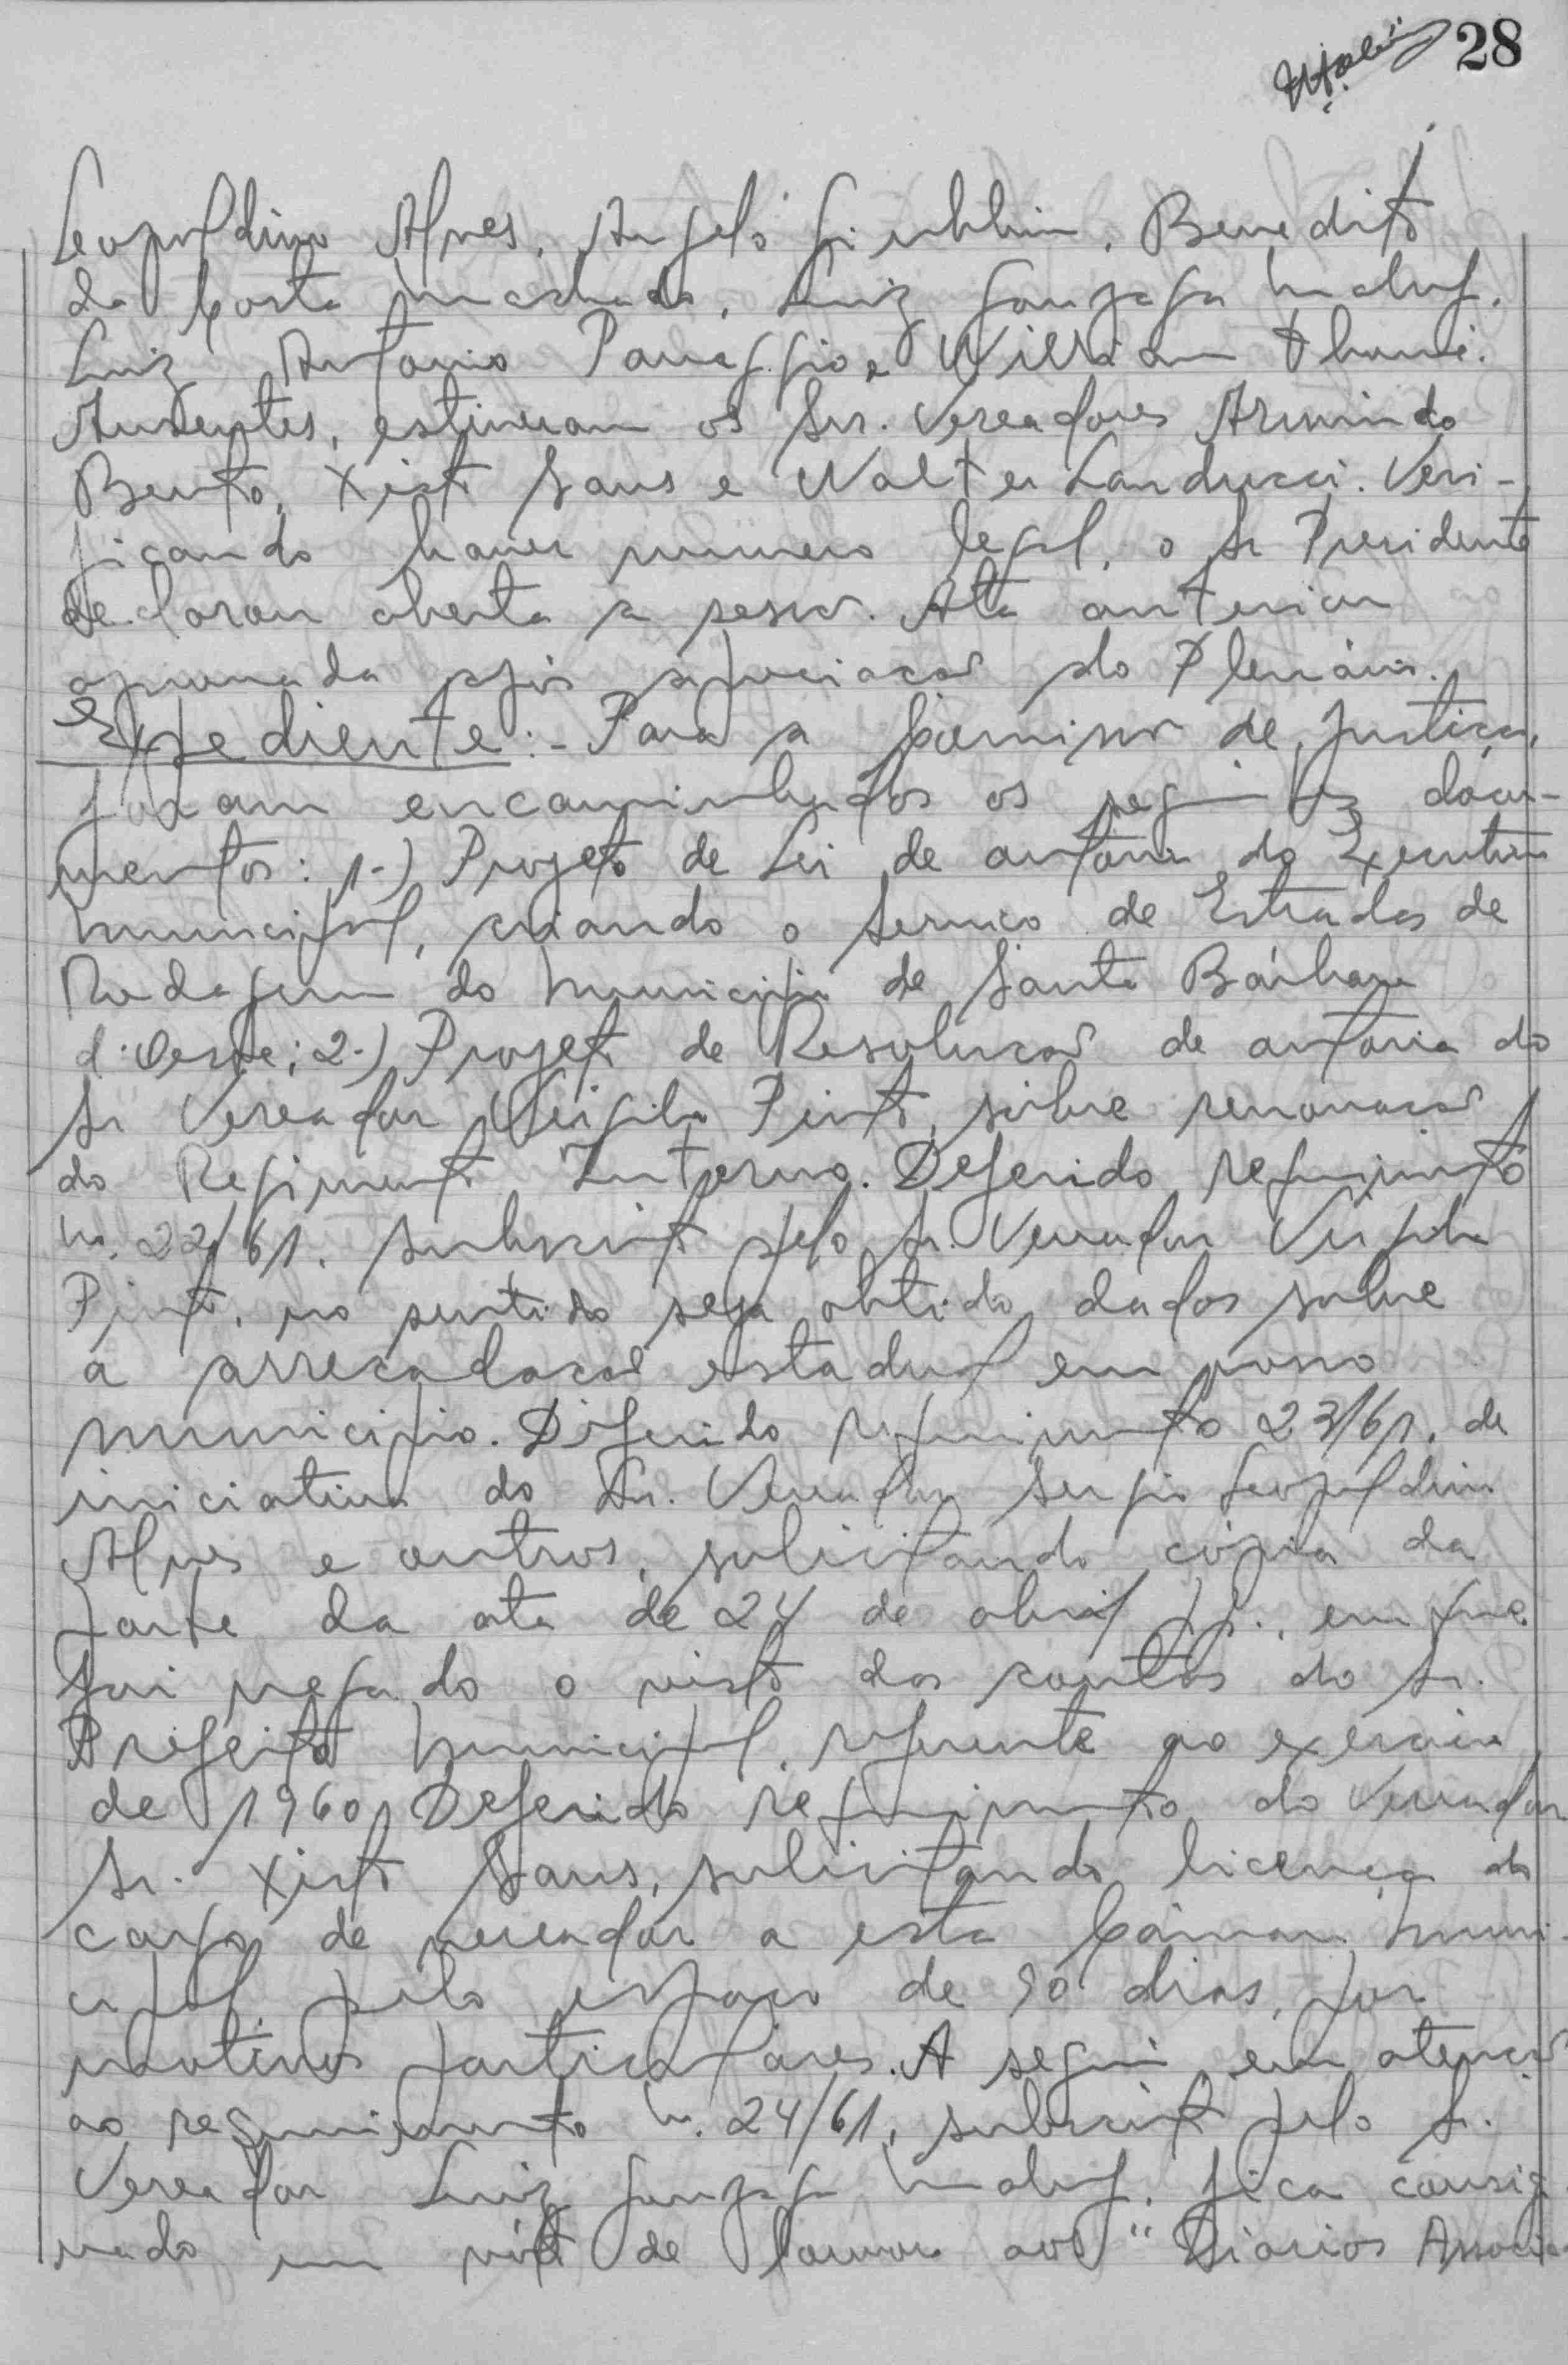 28
Leopoldino Alves, Angelo Giubbina, Benedito
da Costa Machado, Luiz Gonzaga
Luiz Antonio Panaggio e William
Ausentes, estiveram os Srs. Vereadores Armindo
Bento, Xisto Sans e Walter Landucci. Veri-
ficando haver numero legal, o Sr Presidente
declarou aberta a sessão. Ata anterior
aprovada após apreciação do Plenário.
Expediente:- Para a Comissão de Justiça,
foram encaminhados os seguintes docu-
mentos: 1-) Projeto de Lei de autoria do Executivo
Municipal, criando o Serviço de Estradas de
Rodagem do Municipio de Santa Bárbara
d'Oeste; 2-) Projeto de Resolução de autoria do
Sr Vereador Virgilio Pinto, sobre renovação
do Regimento Interno. Deferido requerimento
n. 22/61, subscrito pelo Sr. Vereador Virgilio
Pinto, no sentido seja obtido dados sobre
a arrecadação estadual em nosso
municipio. Diferido requerimento 23/61, de
iniciativa do Sr. Vereador Sergio Leopoldino
Alves e outros, solicitando cópia da
parte da ata de 24 de abril p.p., em que
foi negado o visto das contas do Sr.
Prefeito Municipal, referente ao exercicio
de 1960. Deferido requerimento do Vereador
Sr. Xisto Sans, solicitando licença do
cargo de vereador a esta Câmara Muni-
cipal, pelo espaço de 90 dias, por
motivos particulares. A seguir, em atenção
ao requerimento n. 24/61, subscrito pelo Sr.
Vereador Luiz Gonzaga fica consig-
nado um voto de louvor aos "Diarios Associa-